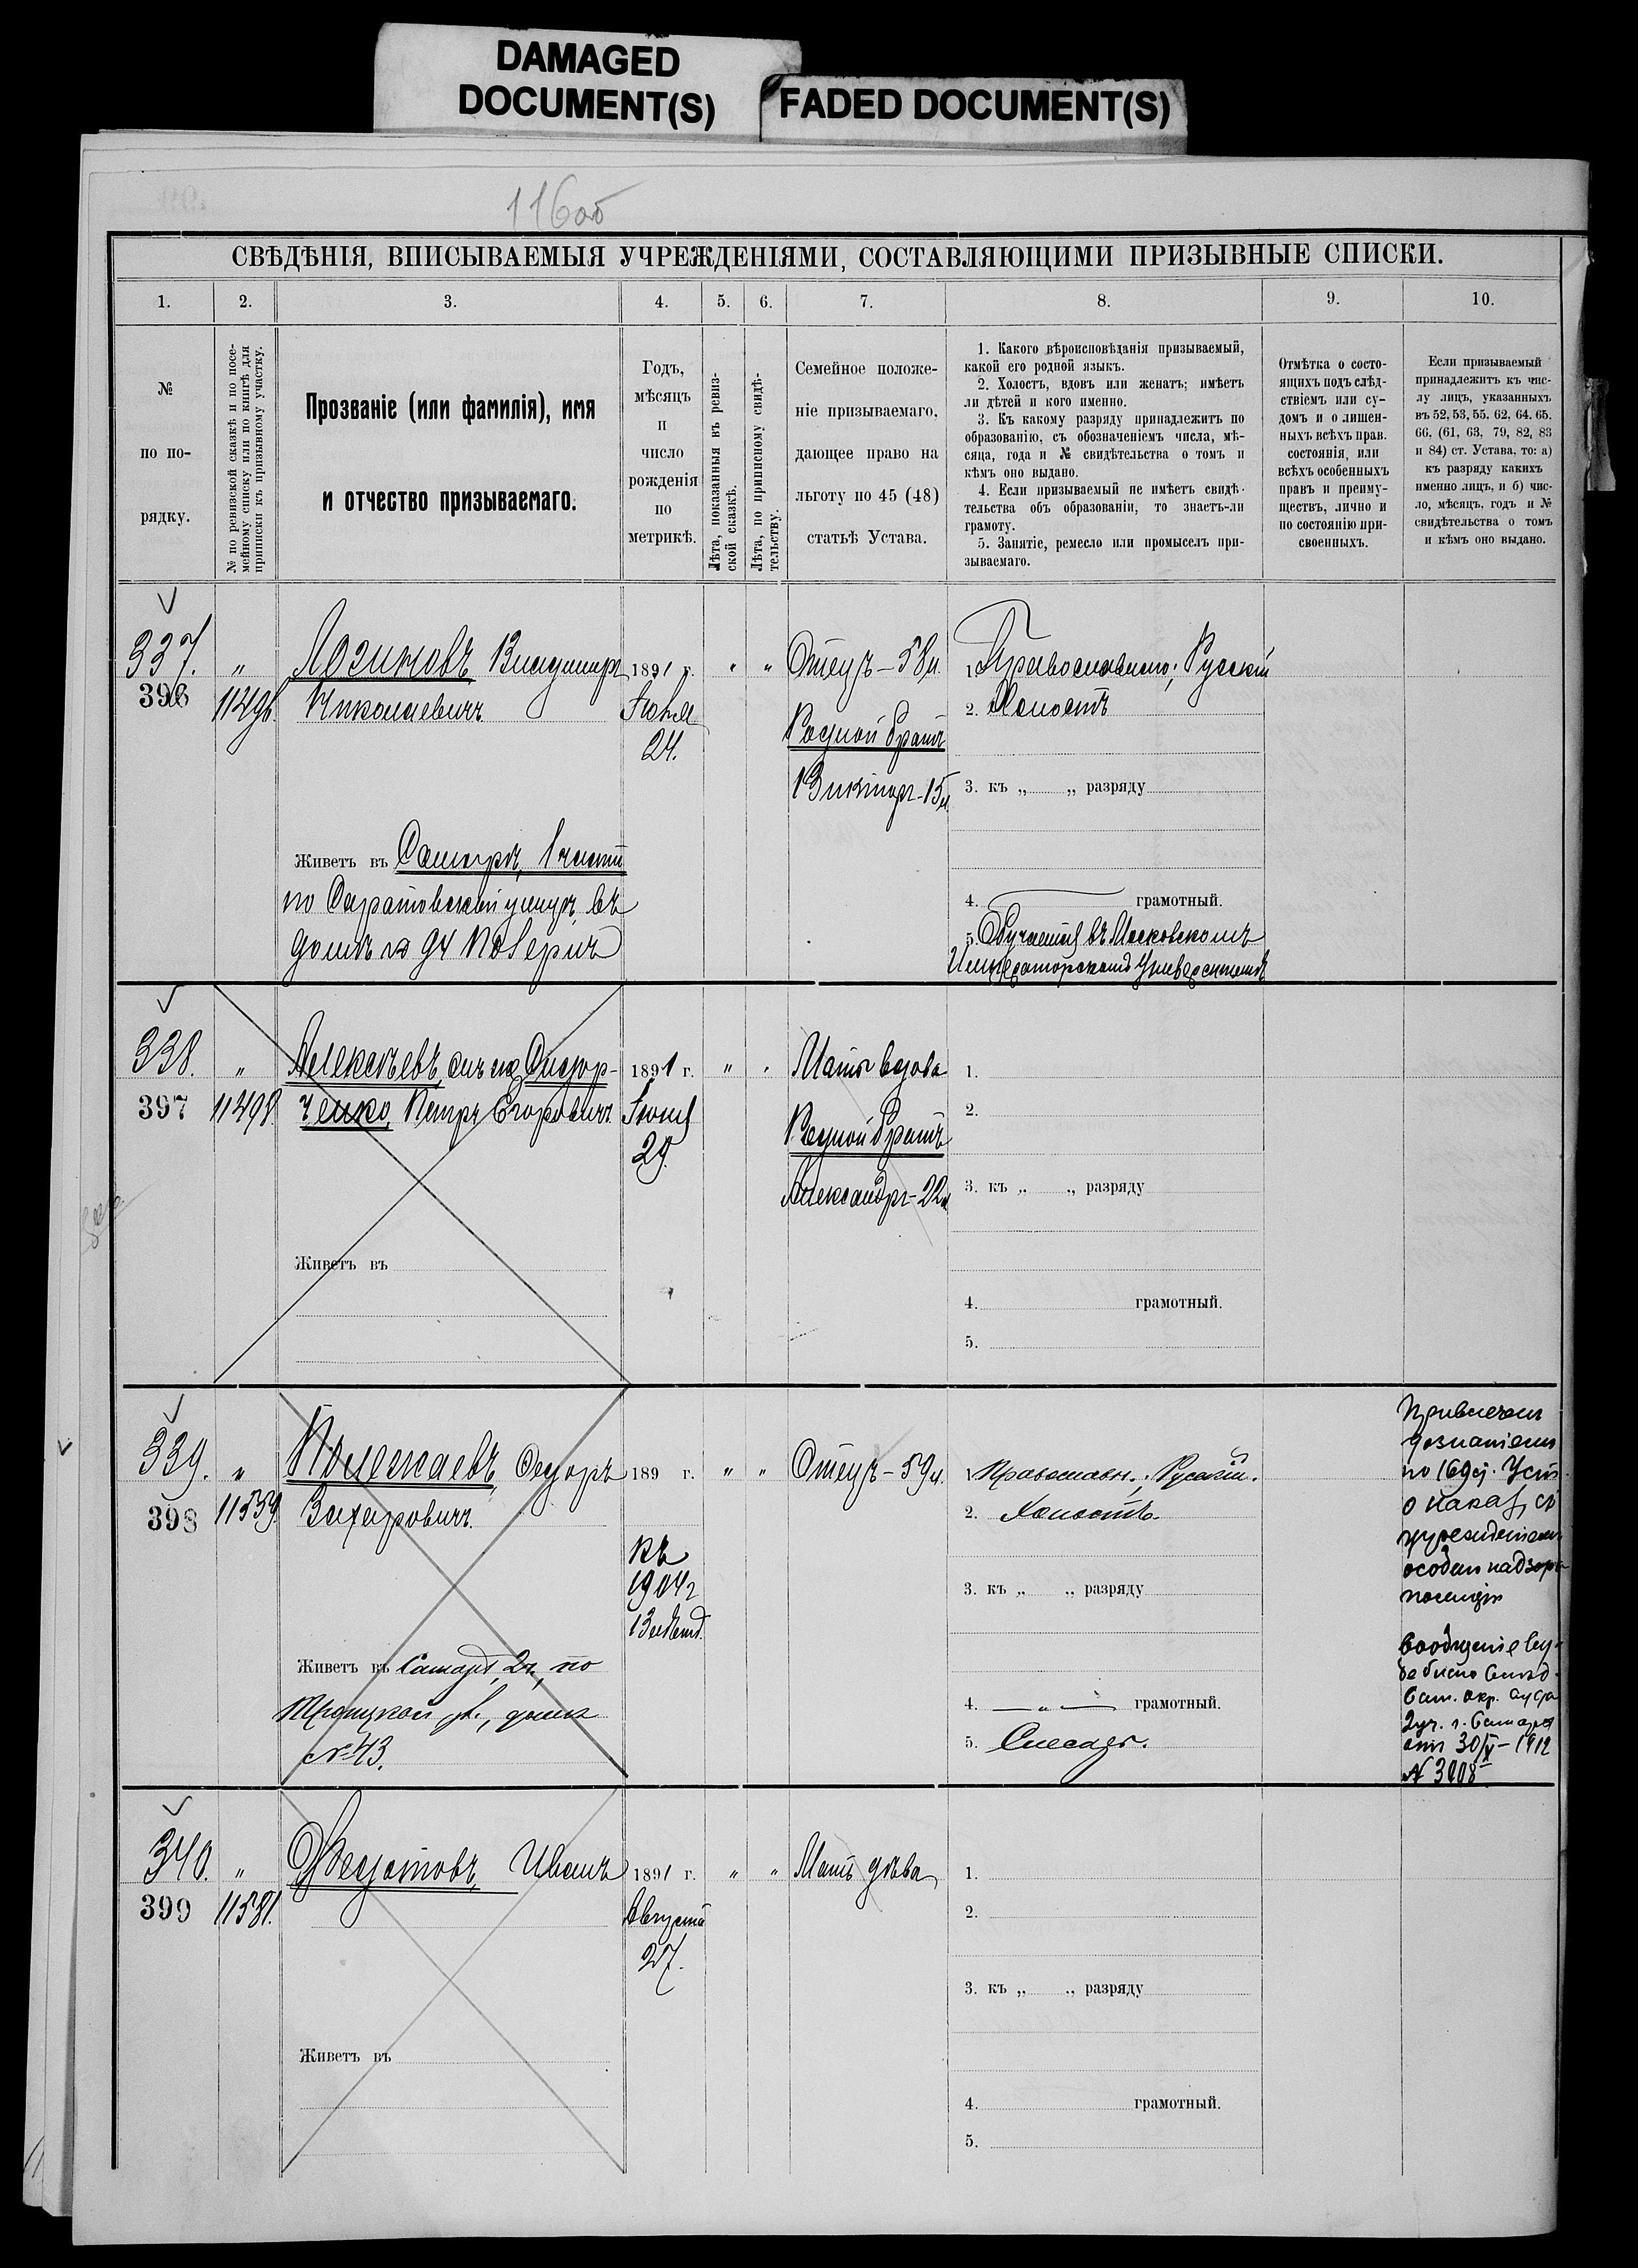 DAMAGED
DOCUMENT(S)
FADED DOCUMENT(S)
116об
СВѢДѢНІЯ, ВПИСЫВАЕМЫЯ УЧРЕЖДЕНІЯМИ, СОСТАВЛЯЮЩИМИ ПРИЗЫВНЫЕ СПИСКИ.
1. 2. 3. 4. 5. 6. 7. 8. 9. 10.
№
по по-
рядку.
№ по ревизской сказкѣ и по посе-
мейному списку или по книгѣ для
приписки къ призывному участку.
Прозваніе (или фамилія), имя
и отчество призываемаго.
Годъ,
мѣсяцъ
и
число
рожденія
по
метрикѣ.
Лѣта, показанныя въ ревиз-
ской сказкѣ.
Лѣта, по приписному свидѣ-
тельству.
Семейное положе-
ніе призываемаго,
дающее право на
льготу по 45 (48)
статьѣ Устава.
1. Какого вѣроисповѣданія призываемый,
какой его родной языкъ.
2. Холостъ, вдовъ или женатъ; имѣетъ
ли дѣтей и кого именно.
3. Къ какому разряду принадлежитъ по
образованію, съ обозначеніемъ числа, мѣ-
сяца, года и № свидѣтельства о томъ и
кѣмъ оно выдано.
4. Если призываемый не имѣетъ свидѣ-
тельства объ образованіи, то знаетъ-ли
грамоту.
5. Занятіе, ремесло или промыселъ при-
зываемаго.
Отмѣтка о состо-
ящихъ подъ слѣд-
ствіемъ или су-
домъ и о лишен-
ныхъ всѣхъ прав.
состоянія, или
всѣхъ особенныхъ
правъ и преиму-
ществъ, лично и
по состоянію при-
своенныхъ.
Если призываемый
принадлежитъ къ чис-
лу лицъ, указанныхъ
въ 52, 53, 55. 62, 64. 65.
66, (61, 63, 79, 82, 83
и 84) ст. Устава, то: а)
къ разряду какихъ
именно лицъ, и б) чис-
ло, мѣсяцъ, годъ и №
свидѣтельства о томъ
и кѣмъ оно выдано.
337. " Логиновъ Владиміръ 1891 г. " " Отецъ – 58 л. 1. Православный; Русскій
396 11496 Николаевичъ Іюня 2. Холостъ
24. Родной братъ
Викторъ – 15 л. 3. къ „ „ разряду
Живетъ въ Самарѣ, 1 части
4. грамотный.
по Саратовской улицѣ, въ
5. Обучается въ Московскомъ
домѣ № 94
Императорскомъ Университетѣ
338. " Алексѣевъ, онъ же Сидор- 1891 г. " " Мать вдова 1.
397 11498 ченко, Петръ Егоровичъ Іюня 2.
29. Родной братъ
Александръ – 22 л. 3. къ „ „ разряду
Живетъ въ
4. грамотный.
5.
339. " Полежаевъ, Ѳедоръ 189 г. " " Отецъ – 59 л. 1. Православн.; Русскій.
398 11559 Захаровичъ. 2. Холостъ.
къ
1904 г.
3. къ „ „ разряду
Живетъ въ Самарѣ, 2 ч, по
Троицкой ул., домъ 4. — " — грамотный.
№ 43. 5. Слесарь.
Привлеченъ
дознаніемъ
по 169 ст. Уст.
о наказ, съ
учрежденіем
особаго надзора
полиціи
Сообщеніе Су-
Сам. окр. суда
2 уч. г. Самары
отъ 30/V – 1912
340. " Ѳедотовъ, Иванъ 1891 г. " " Мать дѣва 1.
399 11581. Августа 2.
27.
3. къ „ „ разряду
Живетъ въ
4. грамотный.
5.